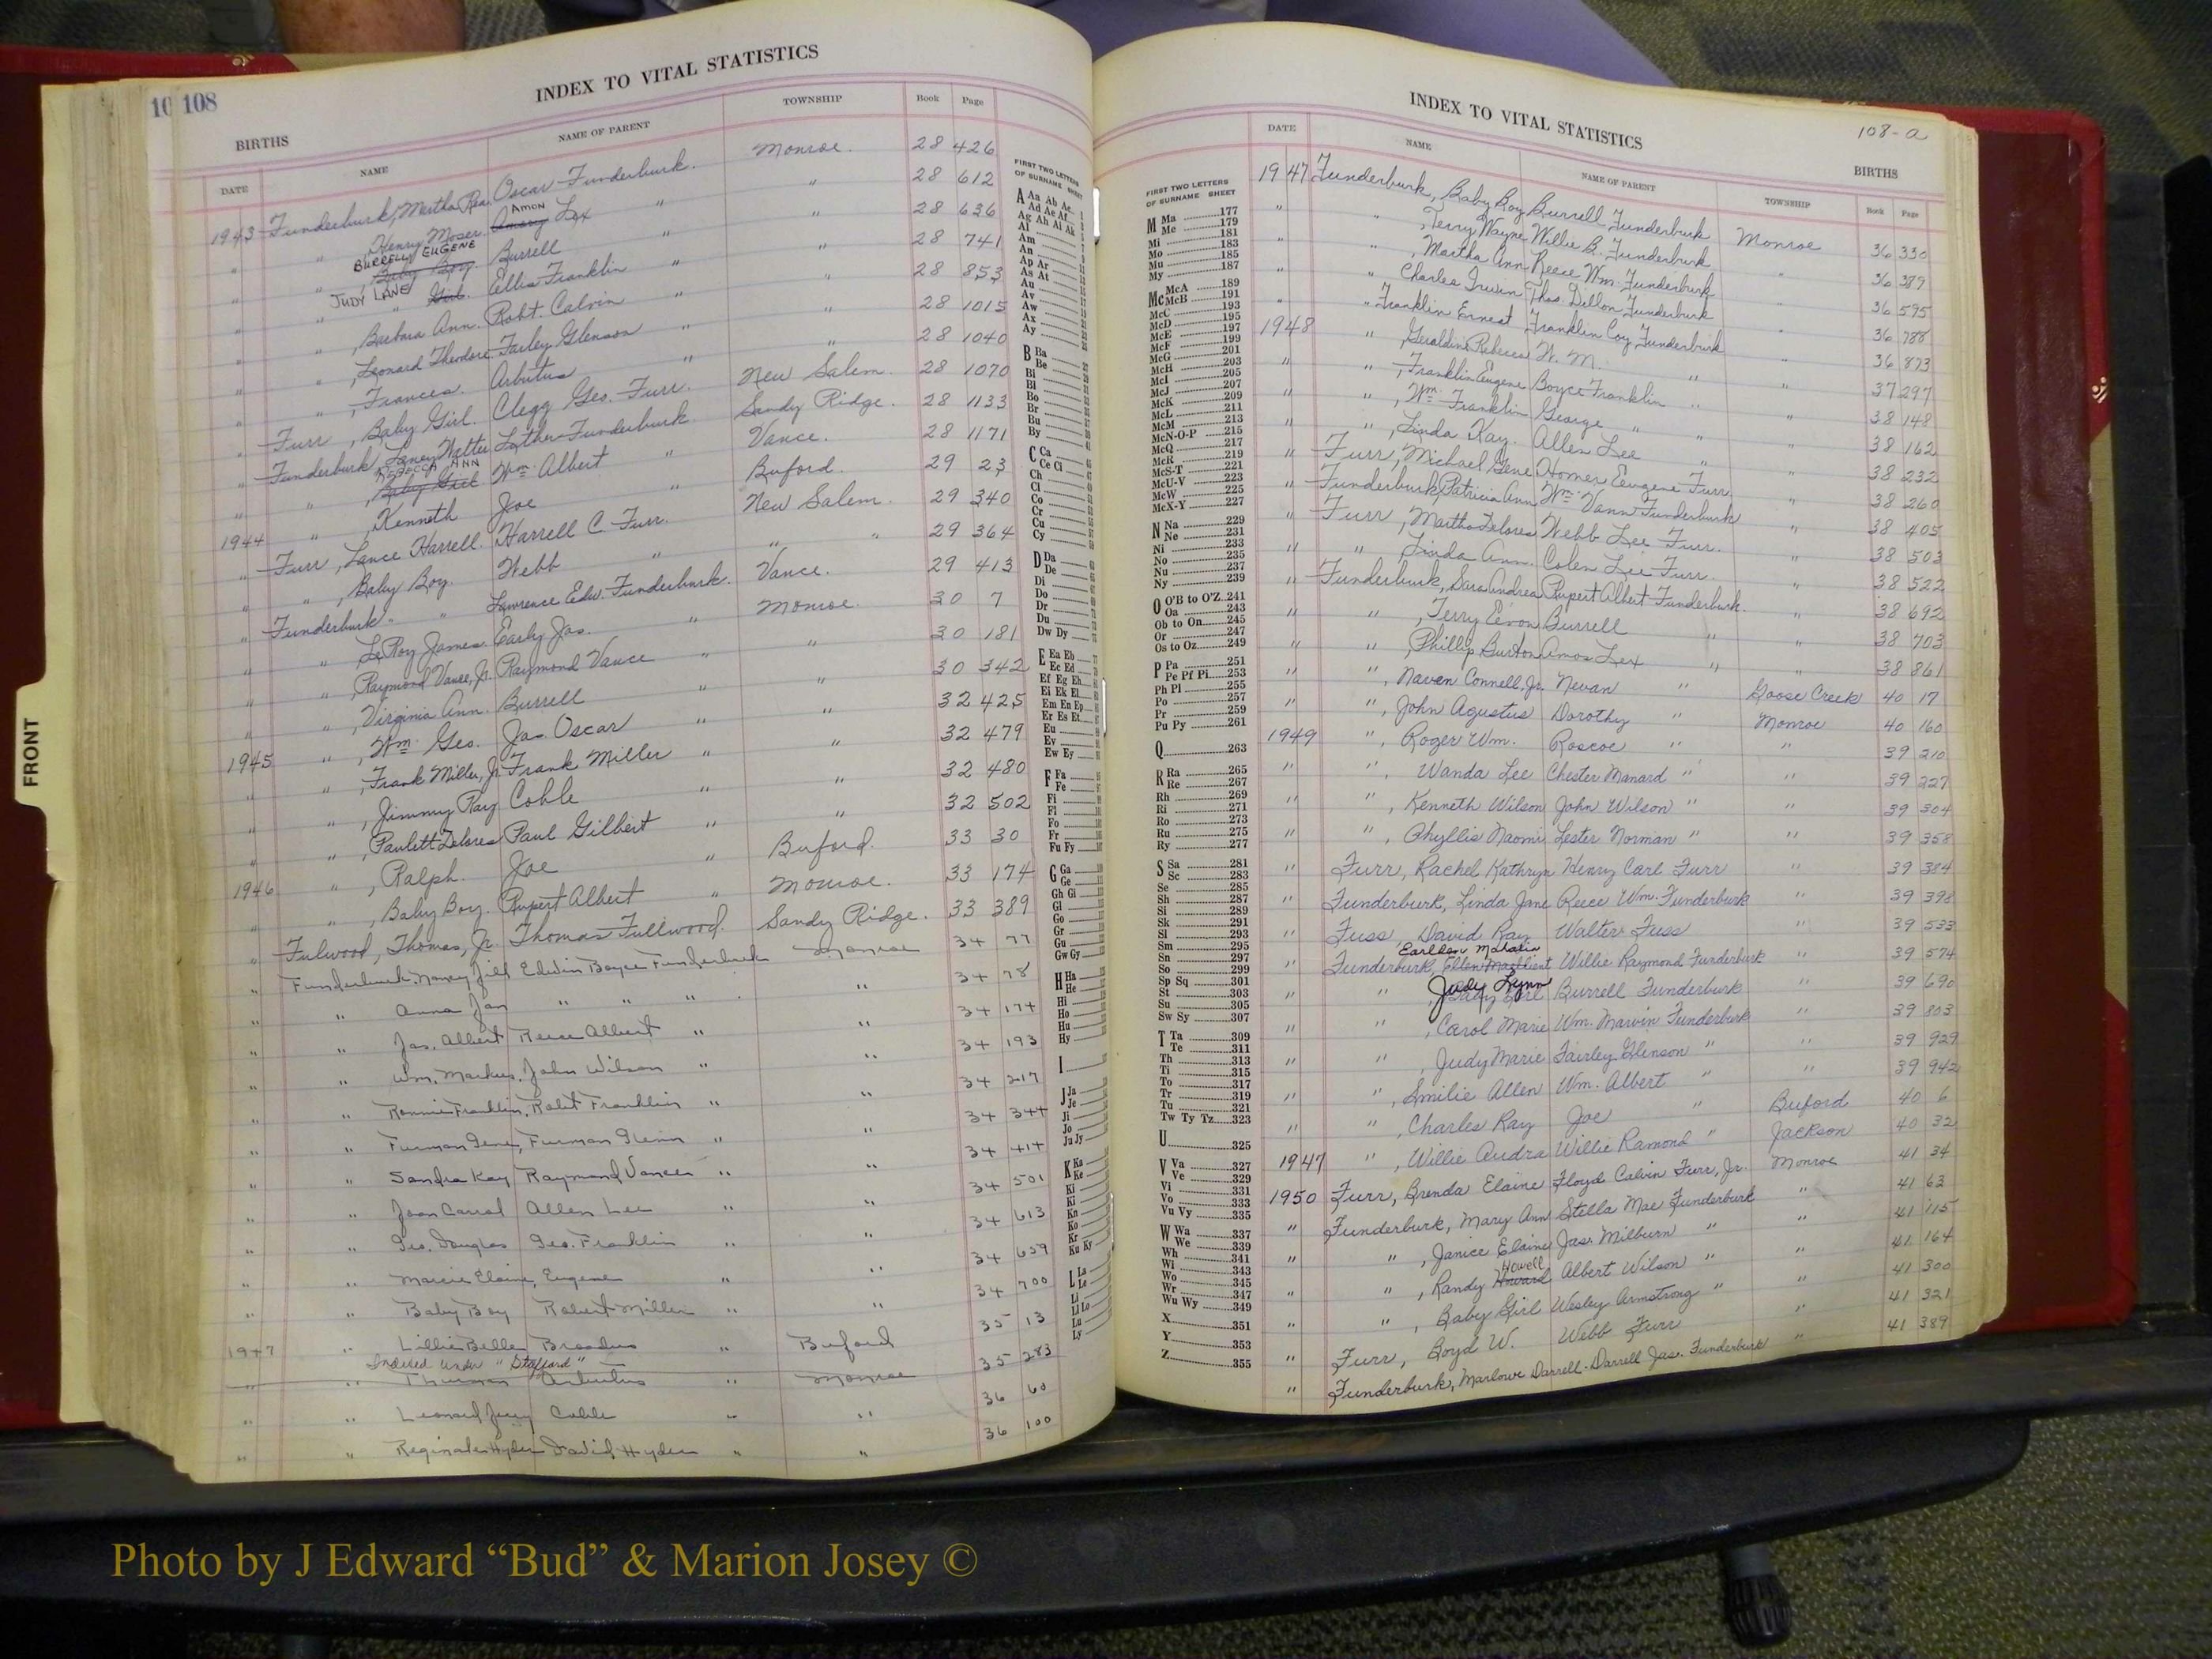 FRONT
10 108
INDEX TO VITAL STATISTICS
BIRTHS
DATE NAME NAME OF PARENT TOWNSHIP Book Page
1943 Funderburk, Martha Rea. Oscar Funderburk. Monroe. 28 426
" " Henry Moser. Amon Lex " " 28 612
" " BURRELL EUGENE Baby Boy. Burrell " 28 636
" " JUDY LANE Girl. Ellis Franklin " " 28 741
" " , Barbara Ann. Robt. Calvin " " 28 853
" " , Leonard Theodore. Farley Glenson " " 28 1015
" " , Frances. Arbutus " " 28 1040
" Furr , Baby Girl. Clegg Geo. Furr. New Salem. 28 1070
" Funderburk, Luther Funderburk Sandy Ridge. 28 1133
" " , REBECCA ANN Baby Girl Wm Albert " Vance. 28 1171
1944 " , Kenneth Joe " Buford. 29 23
" Furr , Lance Harrell. Harrell C. Furr. New Salem. 29 340
" " , Baby Boy. Webb " " " 29 364
" Funderburk " " Lawrence Edw. Funderburk. Vance. 29 413
" " LeRoy James Early Jas. " Monroe. 30 7
" " , Raymond Vance, Jr. Raymond Vance " " 30 181
" " , Virginia Ann. Burrell " " 30 342
1945 " , Wm. Geo. Jas. Oscar " " 32 425
" " , Frank Miller, Jr. Frank Miller " " 32 479
" " , Jimmy Ray Coble " " 32 480
" " , Paulett Delores Paul Gilbert " " 32 502
1946 " , Ralph. Joe " Buford. 33 30
" " , Baby Boy. Rupert Albert " Monroe. 33 174
" Fulwood, Thomas, Jr. Thomas Fullwood. Sandy Ridge. 33 389
" Funderburk, Nancy Jill Edwin Boyce Funderburk Monroe 34 77
" " Anna Jan " " " " 34 78
" " Jas. Albert Reece Albert " " 34 174
" " Wm. Markus. John Wilson " " 34 193
" " Ronnie Franklin, Robt Franklin " " 34 217
" " Furman Gene, Furman Glenn " " 34 344
" " Sandra Kay Raymond Vance " " 34 414
" " Joan Carrol Allen Lee " " 34 501
" " Geo. Douglas Geo. Franklin " " 34 613
" " Marcie Elaine, Eugene " " 34 659
" " Baby Boy Robert Miller " " 34 700
1947 " Lillie Belle Broadus " Buford 35 13
Indexed under "Stafford"
" " Thurman Arbutus " Monroe 35 283
" " Leonard Jerry Coble " " 36 60
" " Reginald Hyder David Hyder " " 36 100
FIRST TWO LETTERS
OF SURNAME SHEET
A Aa Ab Ac
Ad Ae Af
Ag Ah Ai Ak
Al
Am
An
Ap Ar
As At
Au
Av
Aw
Ax
Ay
B Ba
Be
Bi
Bl
Bo
Br
Bu
By
C Ca
Ce Ci
Ch
Cl
Co
Cr
Cu
Cy
D Da
De
Di
Do
Dr
Du
Dw Dy
E Ea Eb
Ec Ed
Ef Eg Eh
Ei Ek El
Em En Ep
Er Es Et
Eu
Ev
Ew Ey
F Fa
Fe
Fi
Fl
Fo
Fr
Fu Fy
G Ga
Ge
Gh Gi
Gl
Go
Gr
Gu
Gw Gy
H Ha
He
Hi
Ho
Hu
Hy
I
J Ja
Je
Ji
Jo
Ju Jy
K Ka
Ke
Ki
Kl
Kn
Ko
Kr
Ku Ky
L La
Le
Li
Ll Lo
Lu
Ly
INDEX TO VITAL STATISTICS
108-a
BIRTHS
DATE NAME NAME OF PARENT TOWNSHIP Book Page
FIRST TWO LETTERS
OF SURNAME SHEET
M Ma 177
Me 179
Mi 181
Mo 183
Mu 185
My 187
Mc McA 189
McB 191
McC 193
McD 195
McE 197
McF 199
McG 201
McH 203
McI 205
McJ 207
McK 209
McL 211
McM 213
McN-O-P 215
McQ 217
McR 219
McS-T 221
McU-V 223
McW 225
McX-Y 227
N Na 229
Ne 231
Ni 233
No 235
Nu 237
Ny 239
O O'B to O'Z 241
Oa 243
Ob to On 245
Or 247
Os to Oz 249
P Pa 251
Pe Pf Pi 253
Ph Pl 255
Po 257
Pr 259
Pu Py 261
Q 263
R Ra 265
Re 267
Rh 269
Ri 271
Ro 273
Ru 275
Ry 277
S Sa 281
Sc 283
Se 285
Sh 287
Si 289
Sk 291
Sl 293
Sm 295
Sn 297
So 299
Sp Sq 301
St 303
Su 305
Sw Sy 307
T Ta 309
Te 311
Th 313
Ti 315
To 317
Tr 319
Tu 321
Tw Ty Tz 323
U 325
V Va 327
Ve 329
Vi 331
Vo 333
Vu Vy 335
W Wa 337
We 339
Wh 341
Wi 343
Wo 345
Wr 347
Wu Wy 349
X 351
Y 353
Z 355
1947 Funderburk, Baby Boy Burrell Funderburk Monroe 36 330
" " , Terry Wayne Willie B. Funderburk " 36 389
" " , Martha Ann Reece Wm. Funderburk 36 595
" " Charles Irwin Thos. Dillon Funderburk " 36 788
" " Franklin Ernest Franklin Coy Funderburk " 36 873
1948 " , Geraldine Rebecca W. M. " " 37 297
" " , Franklin Eugene Boyce Franklin " " 38 148
" " , Wm. Franklin George " " 38 162
" " , Linda Kay. Allen Lee " " 38 232
" Furr, Michael Gene Homer Eeugene Furr " 38 260
" Funderburk, Patricia Ann Wm. Vann Funderburk " 38 405
" Furr, Martha Delores Webb Lee Furr. " 38 503
" " Linda Ann. Colen Lee Furr. " 38 522
" Funderburk, Sara Andrea Rupert Albert Funderburk. " 38 692
" " , Terry Evon Burrell " " 38 703
" " , Phillip Burton Amos Lex " " 38 861
" " , Naven Connell, Jr. Nevan " Goose Creek 40 17
" " , John Agustus Dorothy " Monroe 40 160
1949 " , Roger Wm. Roscoe " " 39 210
" " , Wanda Lee Chester Manard " " 39 227
" " , Kenneth Wilson John Wilson " " 39 304
" " , Phyllis Naomi Lester Norman " " 39 358
" Furr, Rachel Kathryn Henry Carl Furr " 39 384
" Funderburk, Linda Jane Reece Wm. Funderburk " 39 398
" Fuss, David Ray Walter Fuss " 39 533
" Funderburk, Earlden Willie Raymond Funderburk " 39 574
" " , Judy Lynn Baby Girl Burrell Funderburk " 39 690
" " , Carol Marie Wm. Marvin Funderburk " 39 803
" " , Judy Marie Fairley Glenson " " 39 929
" " , Emilie Allen Wm. Albert " " 39 942
" " , Charles Ray Joe " Buford 40 6
1947 " , Willie Audra Willie Ramond " Jackson 40 32
1950 Furr, Brenda Elaine Floyd Calvin Furr, Jr. Monroe 41 34
" Funderburk, Mary Ann Stella Mae Funderburk " 41 63
" " , Janice Elaine Jas. Milburn " " 41 115
" " , Randy Howell Howard Albert Wilson " " 41 164
" " , Baby Girl Wesley Armstrong " " 41 300
" Furr, Boyd W. Webb Furr " 41 321
" Funderburk, Marlowe Darrell. Darrell Jas. Funderburk " 41 389
Photo by J Edward “Bud” & Marion Josey ©